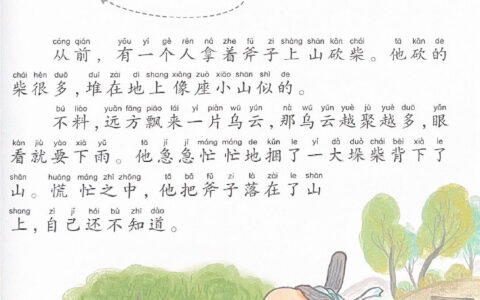 cóng qián yǒu yí gè rén ná zhe fǔ zi shàng shān kǎn chái tā kǎn de
从前，有一个人拿着斧子上山砍柴。他砍的
chái hěn duō duī zài dì shang xiàng zuò xiǎo shān shì de
柴很多，堆在地上像座小山似的。
bú liào yuǎn fāng piāo lái yí piàn wū yún nà wū yún yuè jù yuè duō yǎn
不料，远方飘来一片乌云，那乌云越聚越多，眼
kàn jiù yào xià yǔ tā jí jí máng máng de kǔn le yí dà duò chái bēi xià le
看就要下雨。他急急忙忙地捆了一大垛柴背下了
shān huāng máng zhī zhōng tā bǎ fǔ zi là zài le shān
山。慌忙之中，他把斧子落在了山
shang zì jǐ hái bù zhī dào
上，自己还不知道。